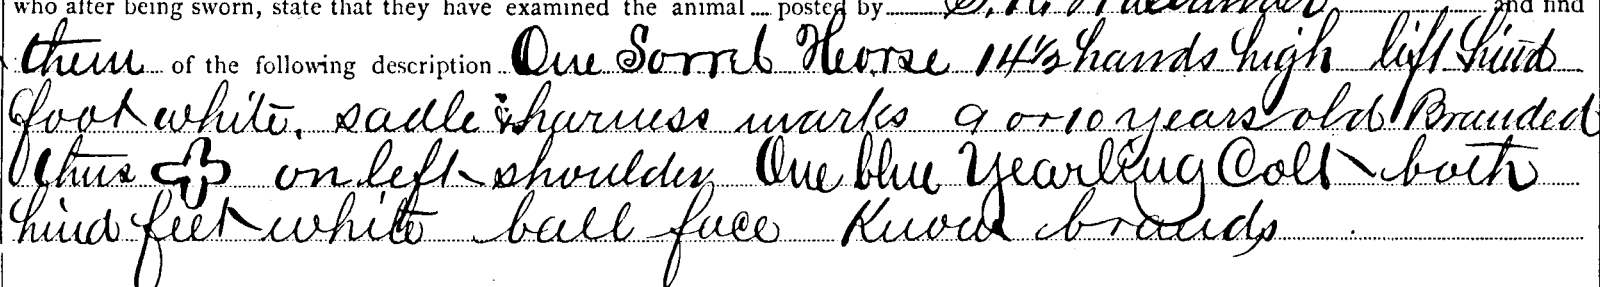 who after being sworn, state that they have examined the animal posted by S. and find
them of the following description One Sorrel Horse 14 1/2 hands high left hind
foot white, sadle & harness marks 9 or 10 years old Branded
thus on left shoulder One blue Yearling Colt both
hind feet white ball face brands